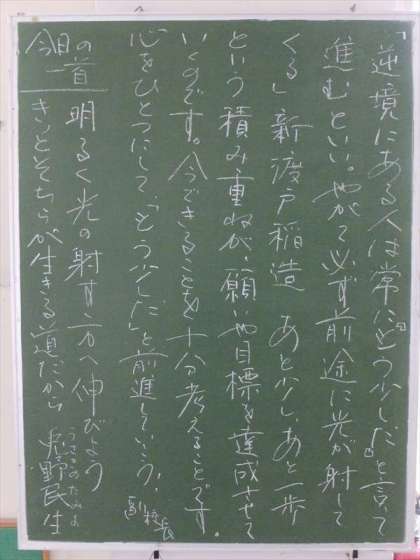 「逆境にある人は常に『もう少しだ』と言って
進むといい。やがて必ず前途に光が射して
くる」新渡戸稲造 あと少し、あと一歩
という積み重ねが、願いや目標を達成させて
いくのです。今できることを十分考えることです。
心をひとつにして、「もう少しだ」と前進していこう。
副校長
今日の一首
明るく光の射す方へ伸びよう
きっとそちらが生きる道だから
兎野民生
うさぎのたみお